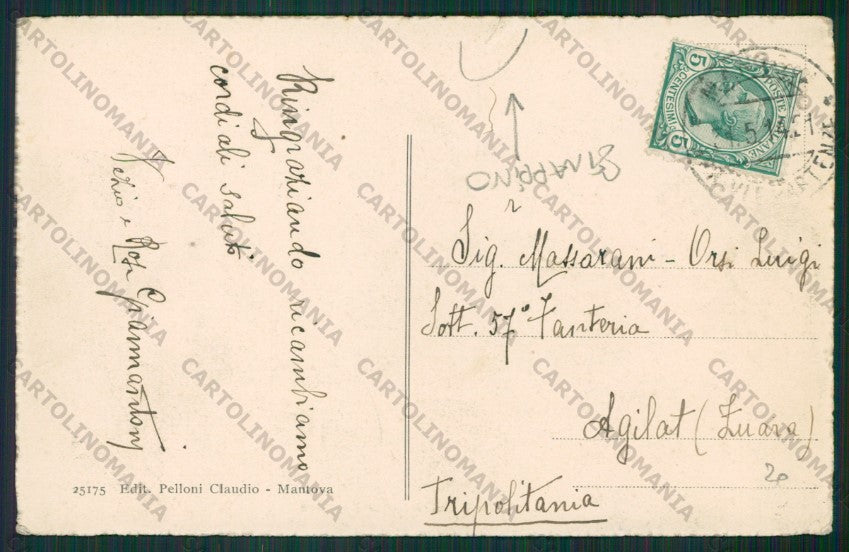 Ringraziando ricambiamo
cordiali saluti
Rosi Giammantoni
25175 Edit. Pelloni Claudio - Mantova
STRAPPINO
Sig. Massarani - Orsi Luigi
Sott. 57° Fanteria
Agilat (Zuara)
Tripolitania
20
5 CENTESIMI 5
POSTE ITALIANE
CARTOLINOMANIA